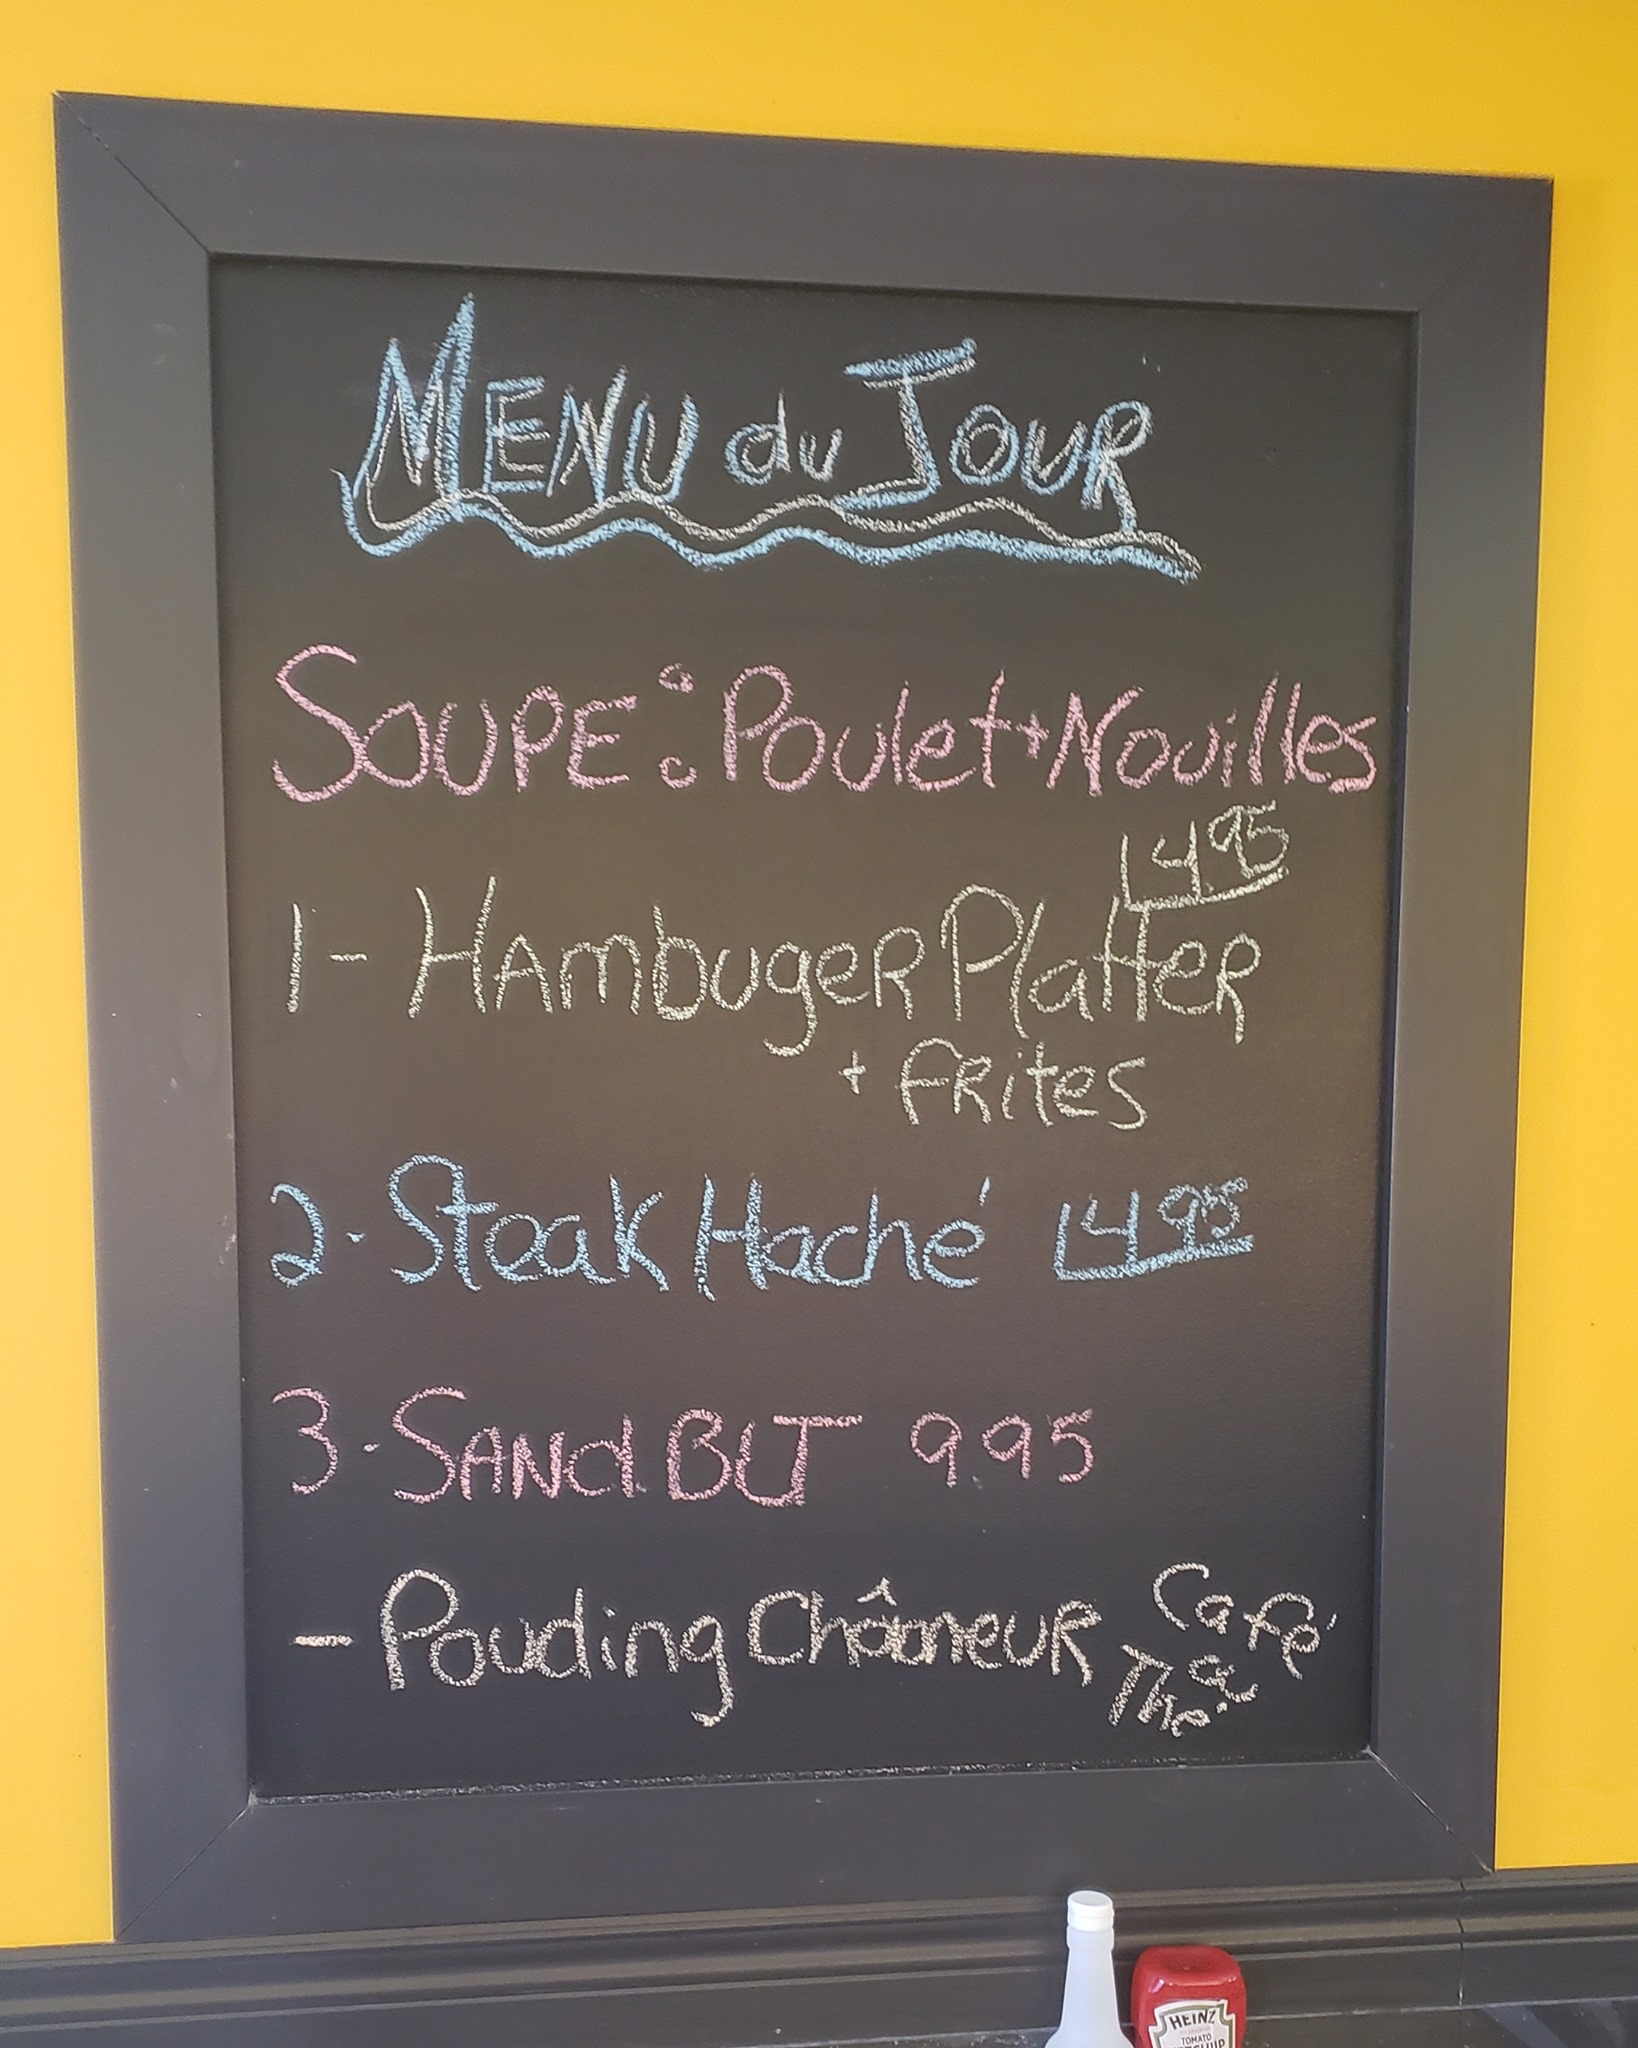 MENU du JOUR
SOUPE: Poulet + Nouilles
14.95
1- HAmbugeR PlatteR
+ FRites
2- Steak Haché 14 95
3- SANd BLT 9 95
- Pouding Chôomeur Café
Thé
HEINZ
TOMATO
KETCHUP